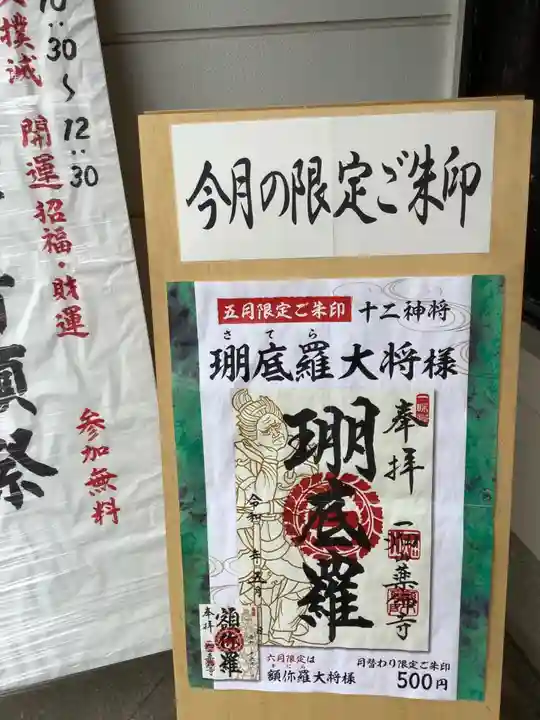 撲滅
10:30〜12:30
開運招福・財運
祭
参加無料
今月の限定ご朱印
五月限定ご朱印 十二神将
さてら
珊底羅大将様
奉拝
珊底羅
薬師寺
奉拝
額弥羅
六月限定は
あにら
額弥羅大将様
月替わり限定ご朱印
500円